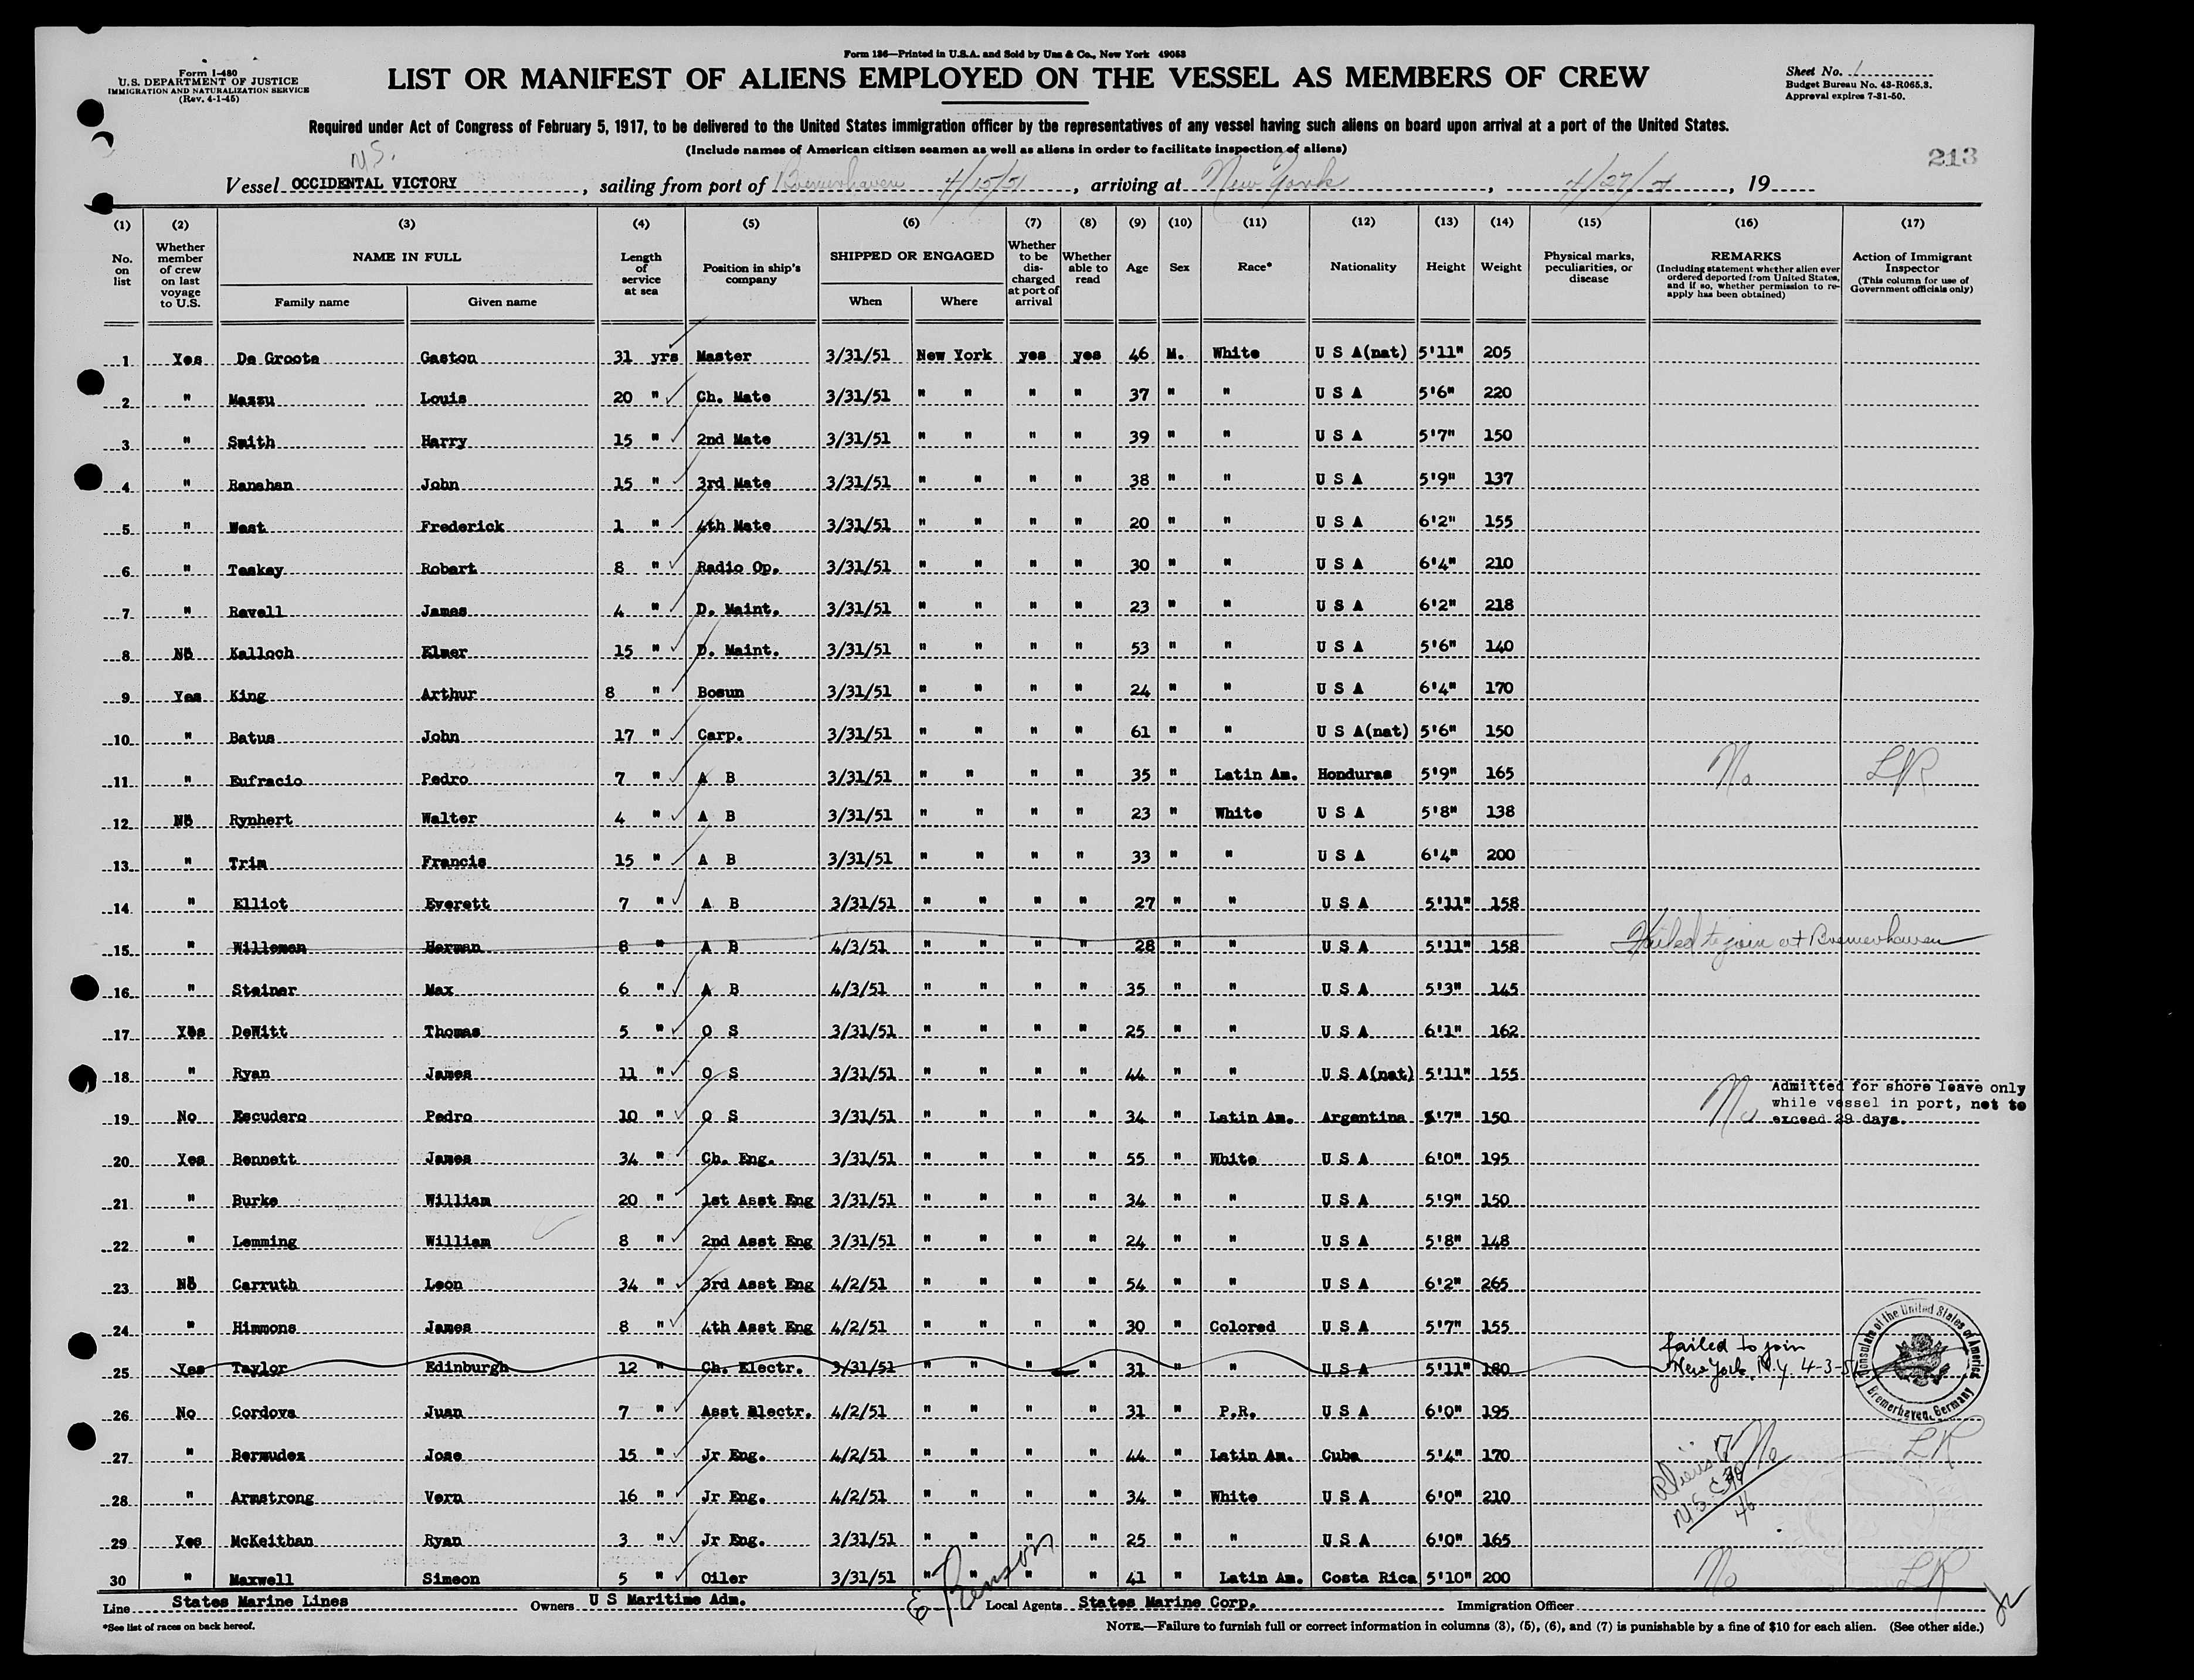 Form 136—Printed in U.S.A. and Sold by Unz & Co., New York 49053
Form I-480
U.S. DEPARTMENT OF JUSTICE
IMMIGRATION AND NATURALIZATION SERVICE
(Rev. 4-1-45)
LIST OR MANIFEST OF ALIENS EMPLOYED ON THE VESSEL AS MEMBERS OF CREW
Sheet No. 1
Budget Bureau No. 43-R065.3.
Approval expires 7-31-50.
Required under Act of Congress of February 5, 1917, to be delivered to the United States immigration officer by the representatives of any vessel having such aliens on board upon arrival at a port of the United States.
(Include names of American citizen seamen as well as aliens in order to facilitate inspection of aliens)
213
Vessel OCCIDENTAL VICTORY, sailing from port of Bremerhaven 4/15/51, arriving at New York, 4/27/51, 19
(1) (2) (3) (4) (5) (6) (7) (8) (9) (10) (11) (12) (13) (14) (15) (16) (17)
No. on list
Whether member of crew on last voyage to U.S.
NAME IN FULL
Family name Given name
Length of service at sea
Position in ship's company
SHIPPED OR ENGAGED
When Where
Whether to be discharged at port of arrival
Whether able to read
Age
Sex
Race*
Nationality
Height
Weight
Physical marks, peculiarities, or disease
REMARKS
(Including statement whether alien ever ordered deported from United States, and if so, whether permission to re-apply has been obtained)
Action of Immigrant Inspector
(This column for use of Government officials only)
1 Yes De Groote Gaston 31 yrs Master 3/31/51 New York yes yes 46 M. White U S A(nat) 5'11" 205
2 " Mazzu Louis 20 " Ch. Mate 3/31/51 " " " " 37 " " U S A 5'6" 220
3 " Smith Harry 15 " 2nd Mate 3/31/51 " " " " 39 " " U S A 5'7" 150
4 " Ranahan John 15 " 3rd Mate 3/31/51 " " " " 38 " " U S A 5'9" 137
5 " West Frederick 1 " 4th Mate 3/31/51 " " " " 20 " " U S A 6'2" 155
6 " Teskey Robert 8 " Radio Op. 3/31/51 " " " " 30 " " U S A 6'4" 210
7 " Revell James 4 " D. Maint. 3/31/51 " " " " 23 " " U S A 6'2" 218
8 No Kalloch Elmer 15 " D. Maint. 3/31/51 " " " " 53 " " U S A 5'6" 140
9 Yes King Arthur 8 " Bosun 3/31/51 " " " " 24 " " U S A 6'4" 170
10 " Batus John 17 " Carp. 3/31/51 " " " " 61 " " U S A(nat) 5'6" 150
11 " Eufracio Pedro 7 " A B 3/31/51 " " " " 35 " Latin Am. Honduras 5'9" 165 No LR
12 No Rynhert Walter 4 " A B 3/31/51 " " " " 23 " White U S A 5'8" 138
13 " Trim Francis 15 " A B 3/31/51 " " " " 33 " " U S A 6'4" 200
14 " Elliot Everett 7 " A B 3/31/51 " " " " 27 " " U S A 5'11" 158
15 " Willeman Herman 8 " A B 4/3/51 " " " " 28 " " U S A 5'11" 158 Failed to join at Bremerhaven
16 " Steiner Max 6 " A B 4/3/51 " " " " 35 " " U S A 5'3" 145
17 Yes DeWitt Thomas 5 " O S 3/31/51 " " " " 25 " " U S A 6'1" 162
18 " Ryan James 11 " O S 3/31/51 " " " " 44 " " U S A(nat) 5'11" 155
19 No Escudero Pedro 10 " O S 3/31/51 " " " " 34 " Latin Am. Argentina 5'7" 150 No Admitted for shore leave only while vessel in port, not to exceed 29 days.
20 Yes Bennett James 34 " Ch. Eng. 3/31/51 " " " " 55 " White U S A 6'0" 195
21 " Burke William 20 " 1st Asst Eng 3/31/51 " " " " 34 " " U S A 5'9" 150
22 " Lemming William 8 " 2nd Asst Eng 3/31/51 " " " " 24 " " U S A 5'8" 148
23 No Carruth Leon 34 " 3rd Asst Eng 4/2/51 " " " " 54 " " U S A 6'2" 265
24 " Himmons James 8 " 4th Asst Eng 4/2/51 " " " " 30 " Colored U S A 5'7" 155
25 Yes Taylor Edinburgh 12 " Ch. Electr. 3/31/51 " " " " 31 " " U S A 5'11" 180 failed to join New York, N.Y. 4-3-51
Consulate of the United States of America
Bremerhaven, Germany
26 No Cordova Juan 7 " Asst Electr. 4/2/51 " " " " 31 " P.R. U S A 6'0" 195
27 " Bermudez Jose 15 " Jr Eng. 4/2/51 " " " " 44 " Latin Am. Cuba 5'4" 170 No LR
28 " Armstrong Vern 16 " Jr Eng. 4/2/51 " " " " 34 " White U S A 6'0" 210
29 Yes McKeithan Ryan 3 " Jr Eng. 3/31/51 " " " " 25 " " U S A 6'0" 165
30 " Maxwell Simeon 5 " Oiler 3/31/51 " " " " 41 " Latin Am. Costa Rica 5'10" 200 No LR
Line States Marine Lines Owners U S Maritime Adm. E Benson Local Agents States Marine Corp. Immigration Officer
*See list of races on back hereof.
NOTE.—Failure to furnish full or correct information in columns (3), (5), (6), and (7) is punishable by a fine of $10 for each alien. (See other side.)